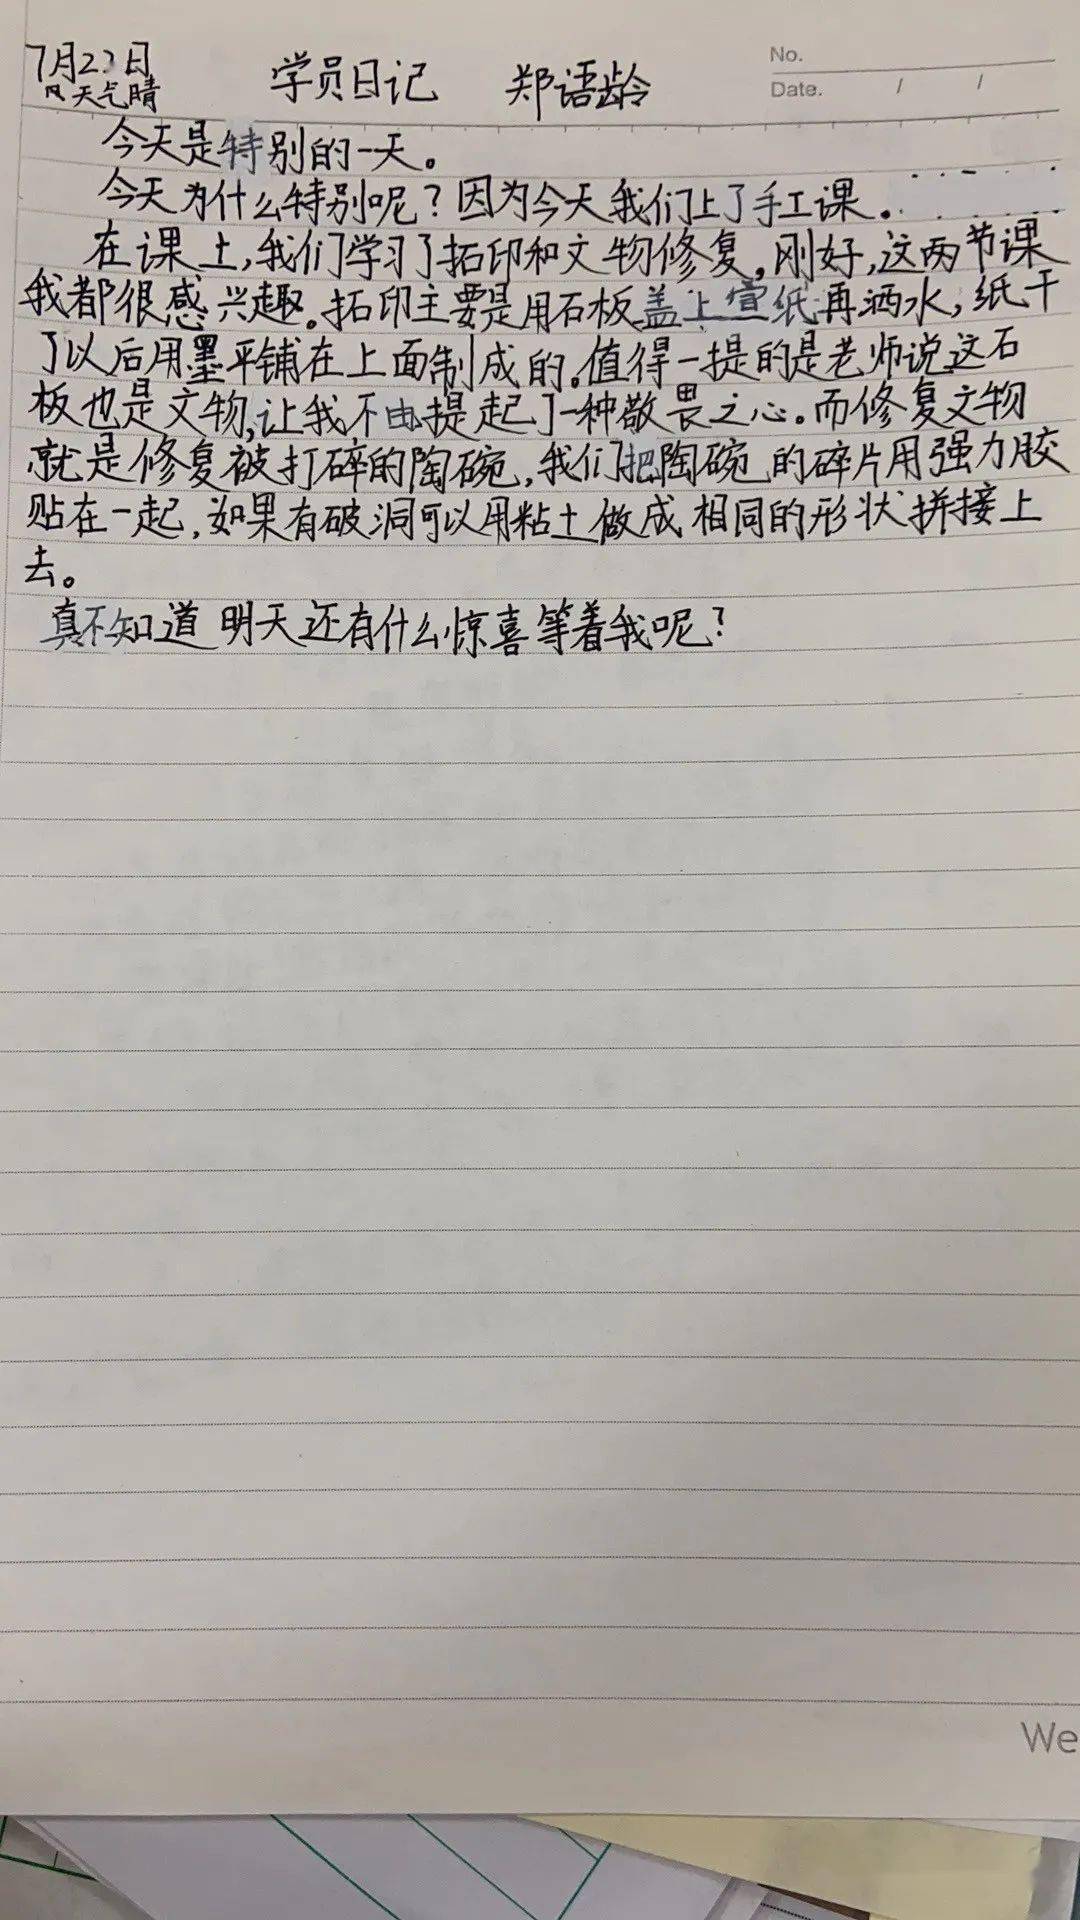 7月22日 学员日记 郑语龄 No.
天气晴 Date. / /
今天是特别的一天。
今天为什么特别呢？因为今天我们上了手工课。
在课上，我们学习了拓印和文物修复，刚好，这两节课
我都很感兴趣。拓印主要是用石板盖上宣纸再洒水，纸干
了以后用墨平铺在上面制成的。值得一提的是老师说这石
板也是文物，让我不由提起了一种敬畏之心。而修复文物
就是修复被打碎的陶碗，我们把陶碗的碎片用强力胶
贴在一起，如果有破洞可以用粘土做成相同的形状拼接上
去。
真不知道明天还有什么惊喜等着我呢？
We